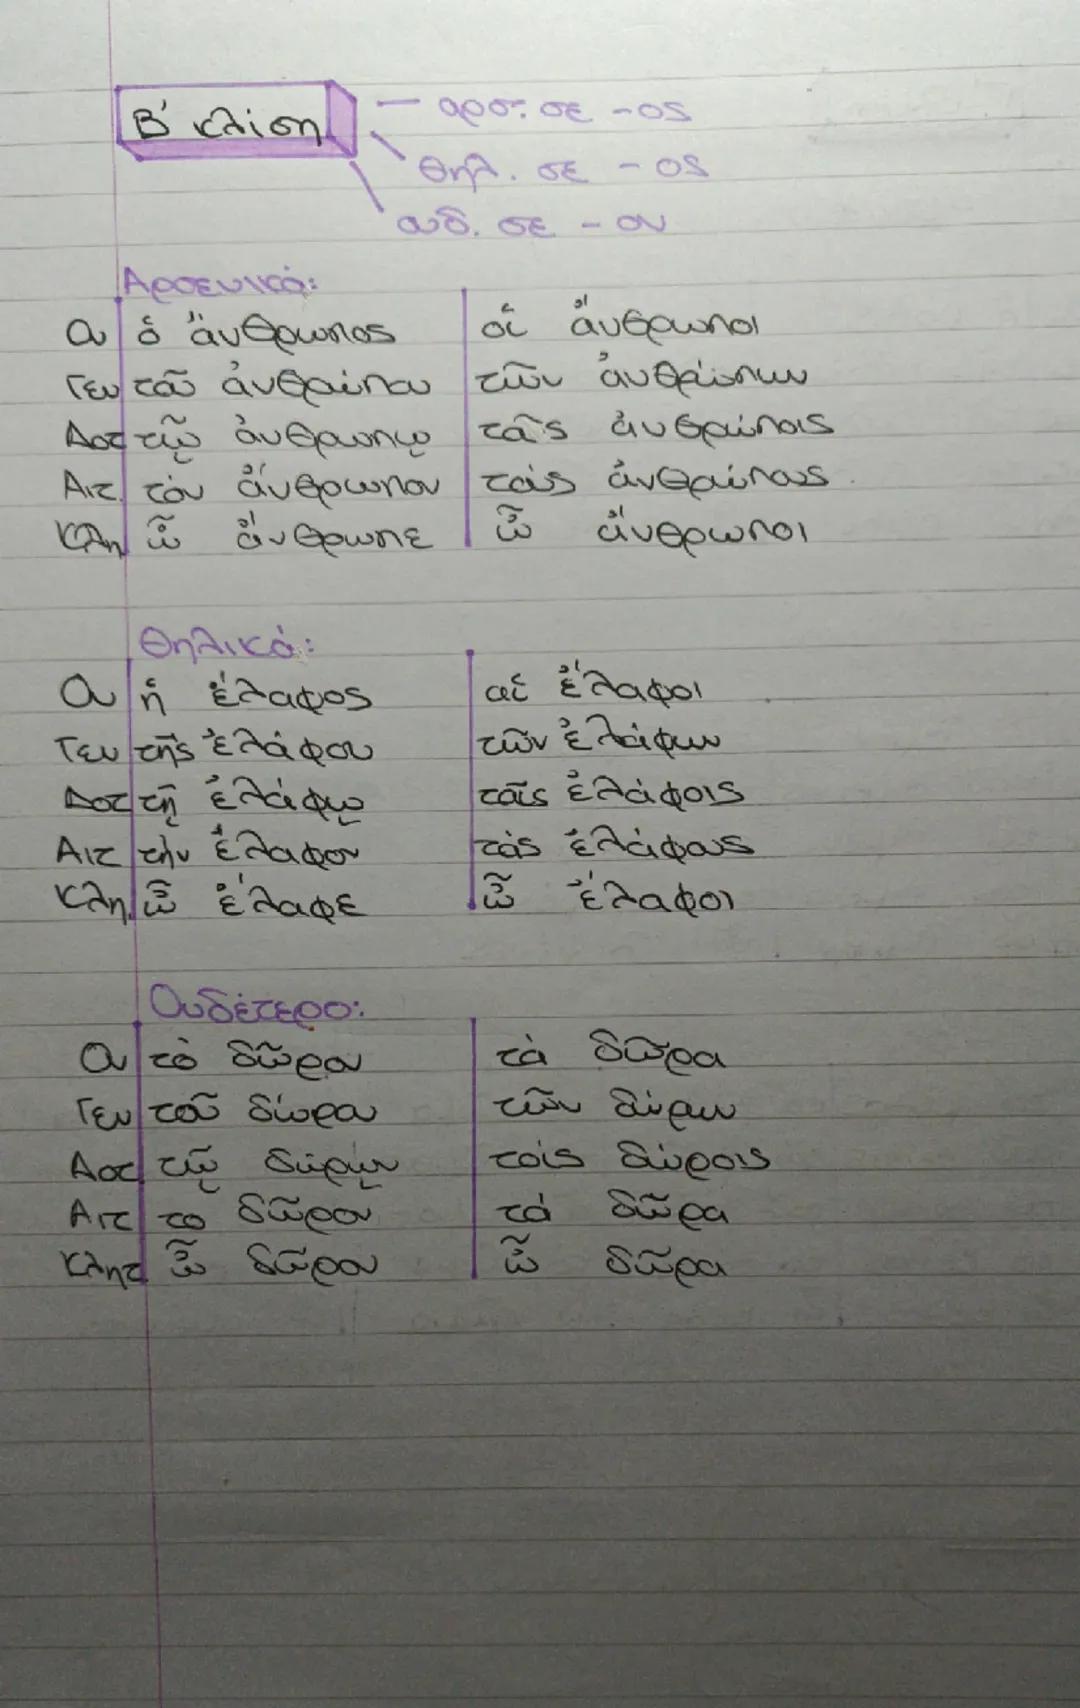 Β' κλίση
— αρσ. σε -ος
θηλ. σε - ος
ουδ. σε - ον
Αρσενικά:
Ον ὁ ἄνθρωπος οἱ ἄνθρωποι
Γεν τοῦ ἀνθρώπου τῶν ἀνθρώπων
Δοτ τῷ ἀνθρώπῳ τοῖς ἀνθρώποις
Αιτ. τόν ἄνθρωπον τούς ἀνθρώπους
Κλη ὦ ἄνθρωπε ὦ ἄνθρωποι
Θηλικά:
Ον ἡ ἔλαφος αἱ ἔλαφοι
Γεν τῆς ἐλάφου τῶν ἐλάφων
Δοτ τῇ ἐλάφῳ ταῖς ἐλάφοις
Αιτ τήν ἔλαφον τάς ἐλάφους
Κλη. ὦ ἔλαφε ὦ ἔλαφοι
Ουδέτερο:
Ον τὸ δῶρον τὰ δῶρα
Γεν τοῦ δώρου τῶν δώρων
Δοτ τῷ δώρῳ τοῖς δώροις
Αιτ το δῶρον τά δῶρα
Κλητ ὦ δῶρον ὦ δῶρα